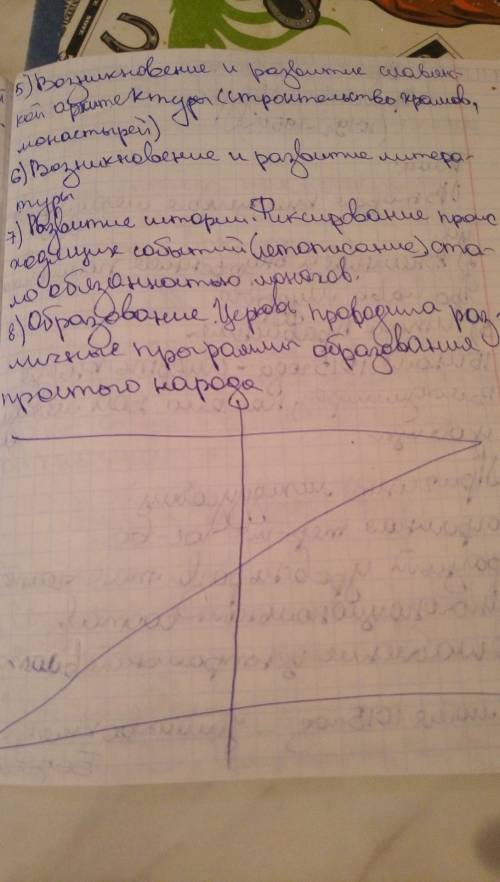 5) Возникновение и развитие славянс-
кой архитектуры (строительство храмов,
монастырей)
6) Возникновение и развитие литера-
туры
7) Развитие истории. Фиксирование проис
ходящих событий (летописание) ста-
ло обязанностью монахов.
8) Образование Церковь проводила раз
личные программы образования
простого народа